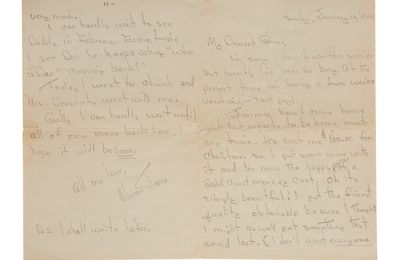 Sunday, January 14,
My Dearest Grace,
I'm sorry I hadn't written sooner
but honestly I've been so busy. At the
present time I'm having a two weeks
vacation (without pay).
Jimmy hasn't come home
yet but expects to be home most
any time. He sent me $100.00 for
Christmas so I put some more with
it and
Coast money coat. Oh it's
simply beautiful! I got the finest
quality obtainable because I thought
I might as well get something that
would last. (I don't want everyone
-4-
very much.
I can hardly wait to see
Daddy in February. Everytime
I see he keeps asking "when
is "Doc" coming back?"
Today I went to church and
Mrs. went with me.
I can hardly wait until
all of you move back here. I
hope it will be soon.
All my love,
Norma Jeane
P.S. I shall write later.